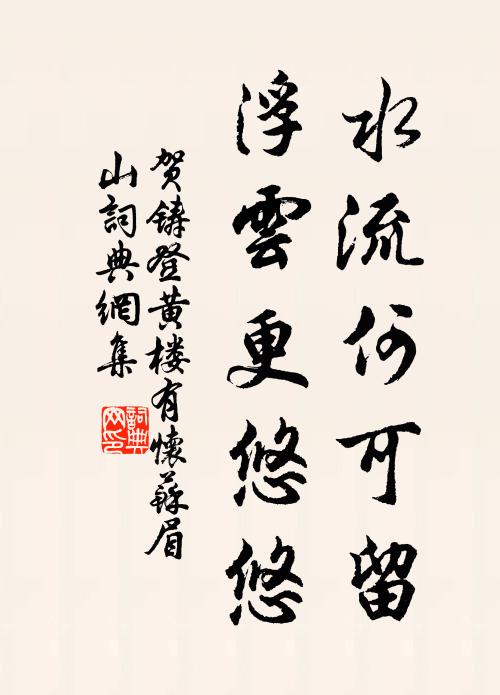 水流何可留
浮雲更悠悠
贺鑄登黄楼有懷蘇眉
山詞典網集
詞典
网印